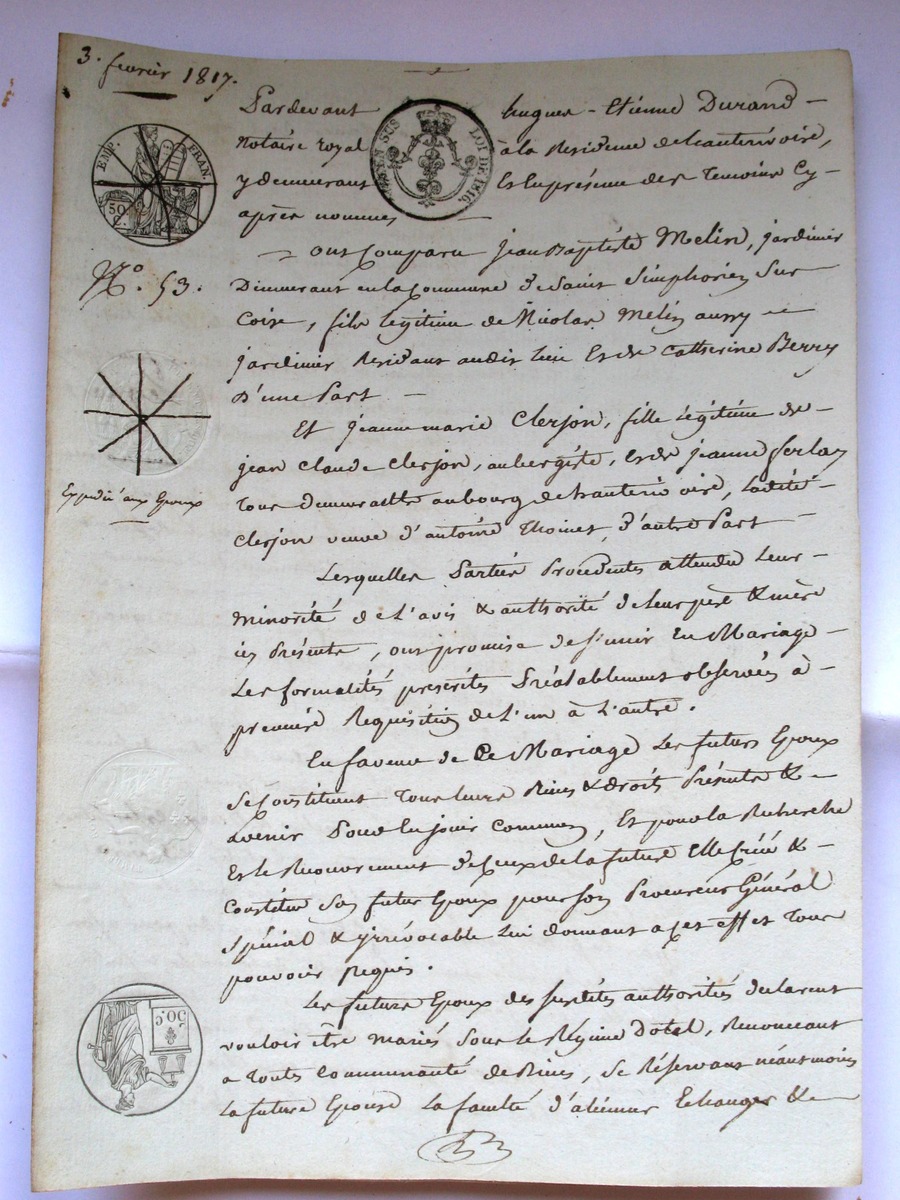 3. fevrier 1817.
Pardevant hugues - Etienne Durand
Notaire royal à la Residence de hauterivoire,
y demeurant Et En présence des Temoins Cy-
après nommés
EMP. FRAN.
50 C.
TIMB. EN SUS LOI DE 1816.
Ont Comparu jean Baptiste Melin, jardinier
N.º 53.
Demeurant en la Commune de Saint Simphorien Sur
Coise, fils légitime de Nicolas Melin aussy
jardinier Residant audit lieu Et de Catherine Berry
D'une Part
Et jeanne marie Clerjon, fille légitime de
jean Claude Clerjon, aubergiste, Et de jeanne ferlay
Expedié aux Epoux
Tous demeurants au bourg de hauterivoire, Ladite
Clerjon veuve d'antoine Thoinet, D'autre Part
Lesquelles Parties Procedentes attendu leur
minorité de L'avis & authorité de leur père & mère
icy Présents, ont promis de s'unir En Mariage
Les formalités préscrites Préalablement observées à
première Requisition de L'un à L'autre.
En faveur de Ce Mariage Les futurs Epoux
Se Constituent Tous leurs Biens & droits Présents &
avenir Pour En jouir Commun, Et pour la Recherche
Et le Recouvrement de Ceux de la future Elle Créé &
Constitue Son futur Epoux pour Son Procureur Général
Spécial & irrévocable Lui donnant a Cet effet Tous
pouvoirs Requis.
50. C.
Les futurs Epoux des susdites authorités declarent
vouloir être mariés Sous le Régime Dotal, Renonceant
a Toutes Communauté de Biens, Se Réservant néantmoins
La future Epouse La faculté d'aliéner Echanger &